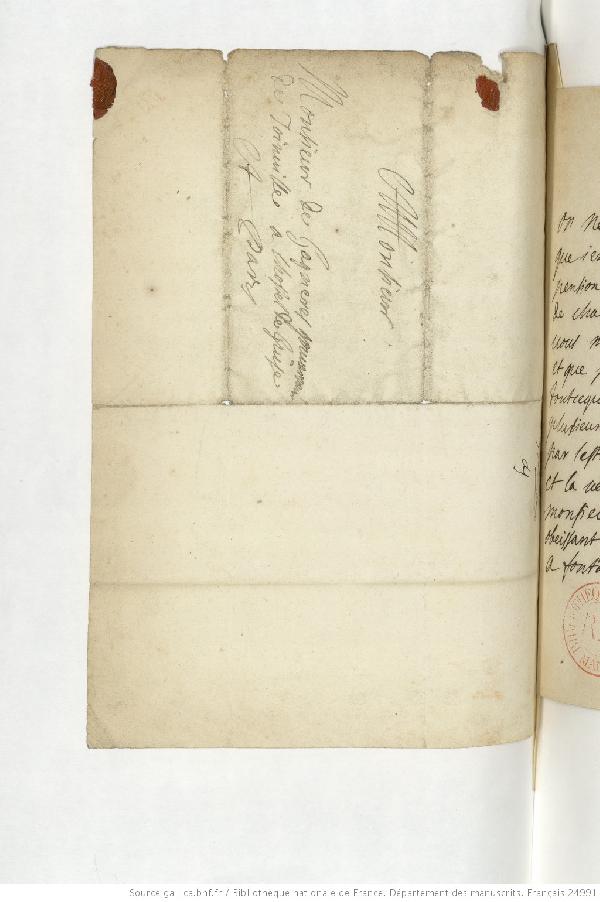 A Monsieur
Monsieur de Gagnieres gouverneur
de Joinville a l'hostel de Guise.
A Paris
On ne
que j'en
pention
de cha
vous
et que
plusieurs
par
et la
monsieu
obeissant
a fonta
Source gallica.bnf.fr / Bibliothèque nationale de France. Département des manuscrits. Français 24991